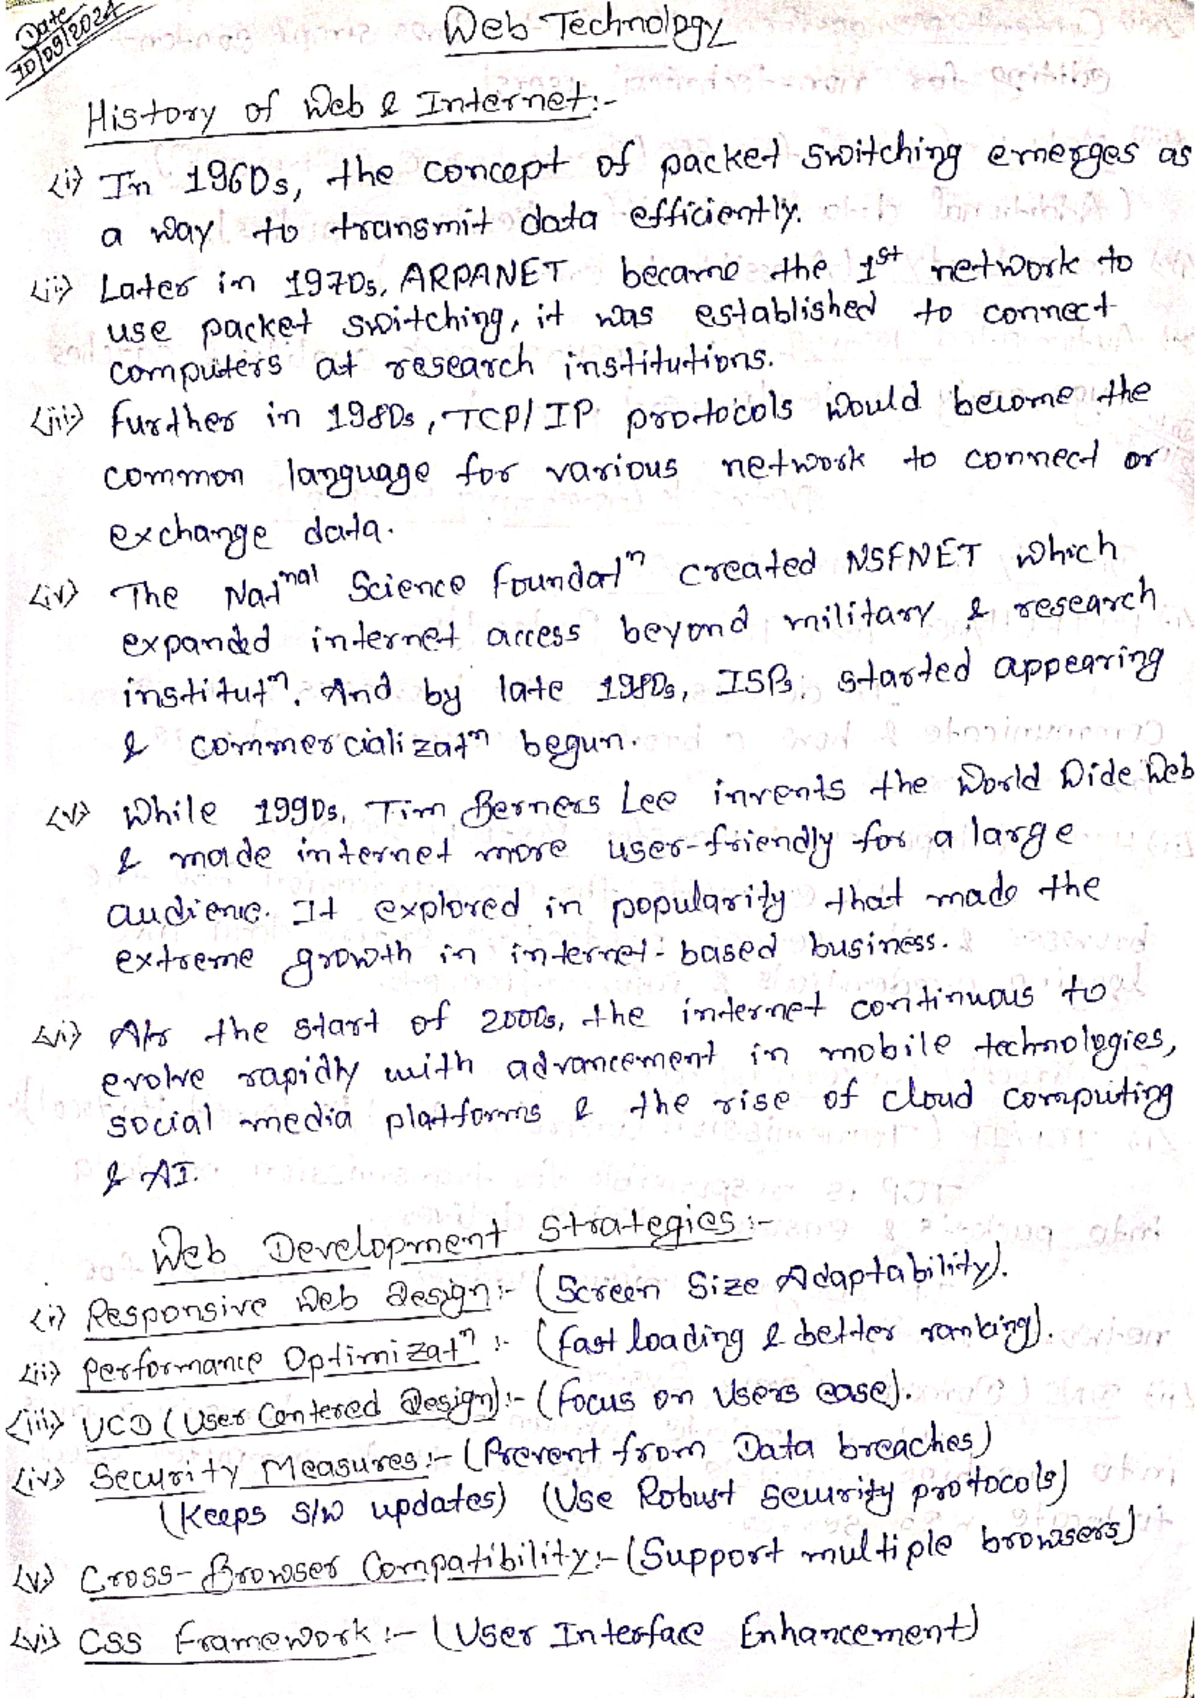 Date
10/09/2024
Web Technology
History of Web & Internet:-
(i) In 1960s, the concept of packet switching emerges as
a way to transmit data efficiently.
(ii) Later in 1970s, ARPANET became the 1st network to
use packet switching, it was established to connect
computers at research institutions.
(iii) further in 1980s, TCP/IP protocols would become the
common language for various network to connect or
exchange data.
(iv) The Natnal Science Foundatn created NSFNET which
expanded internet access beyond military & research
institutn. And by late 1980s, ISPs started appearing
& commercializatn begun.
(v) While 1990s, Tim Berners Lee invents the World Wide Web
& made internet more user-friendly for a large
audience. It explored in popularity that made the
extreme growth in internet-based business.
(vi) At the start of 2000s, the internet continuous to
evolve rapidly with advancement in mobile technologies,
social media platforms & the rise of cloud computing
& AI.
Web Development Strategies:-
(i) Responsive Web Design:- (Screen Size Adaptability).
(ii) Performance Optimizatn :- (fast loading & better ranking).
(iii) UCD (User Centered Design):- (Focus on Users ease).
(iv) Security Measures:- (Prevent from Data breaches)
(Keeps S/W updates) (Use Robust security protocols)
(v) Cross-Browser Compatibility:- (Support multiple browsers)
(vi) CSS Framework:- (User Interface Enhancement)